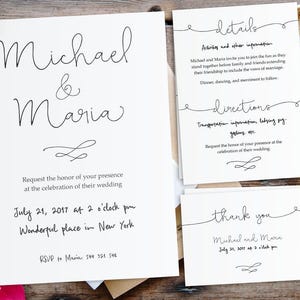 Michael
&
Maria
Request the honor of your presence
at the celebration of their wedding
July 21, 2017 at 2 o'clock pm
Wonderful place in New York
RSVP to Maria 544 551 548
details
Activities and other information
Michael and Maria invite you to join the fun as they
stand together before family and friends extending
their friendship to include the vows of marriage.
Dinner, dancing, and merriment to follow.
directions
Transportation information, lodging, pay
options, etc.
Request the honor of your presence at the
celebration of their wedding.
thank you
Michael and Maria
July 21, 2017 at 2 o'clock pm